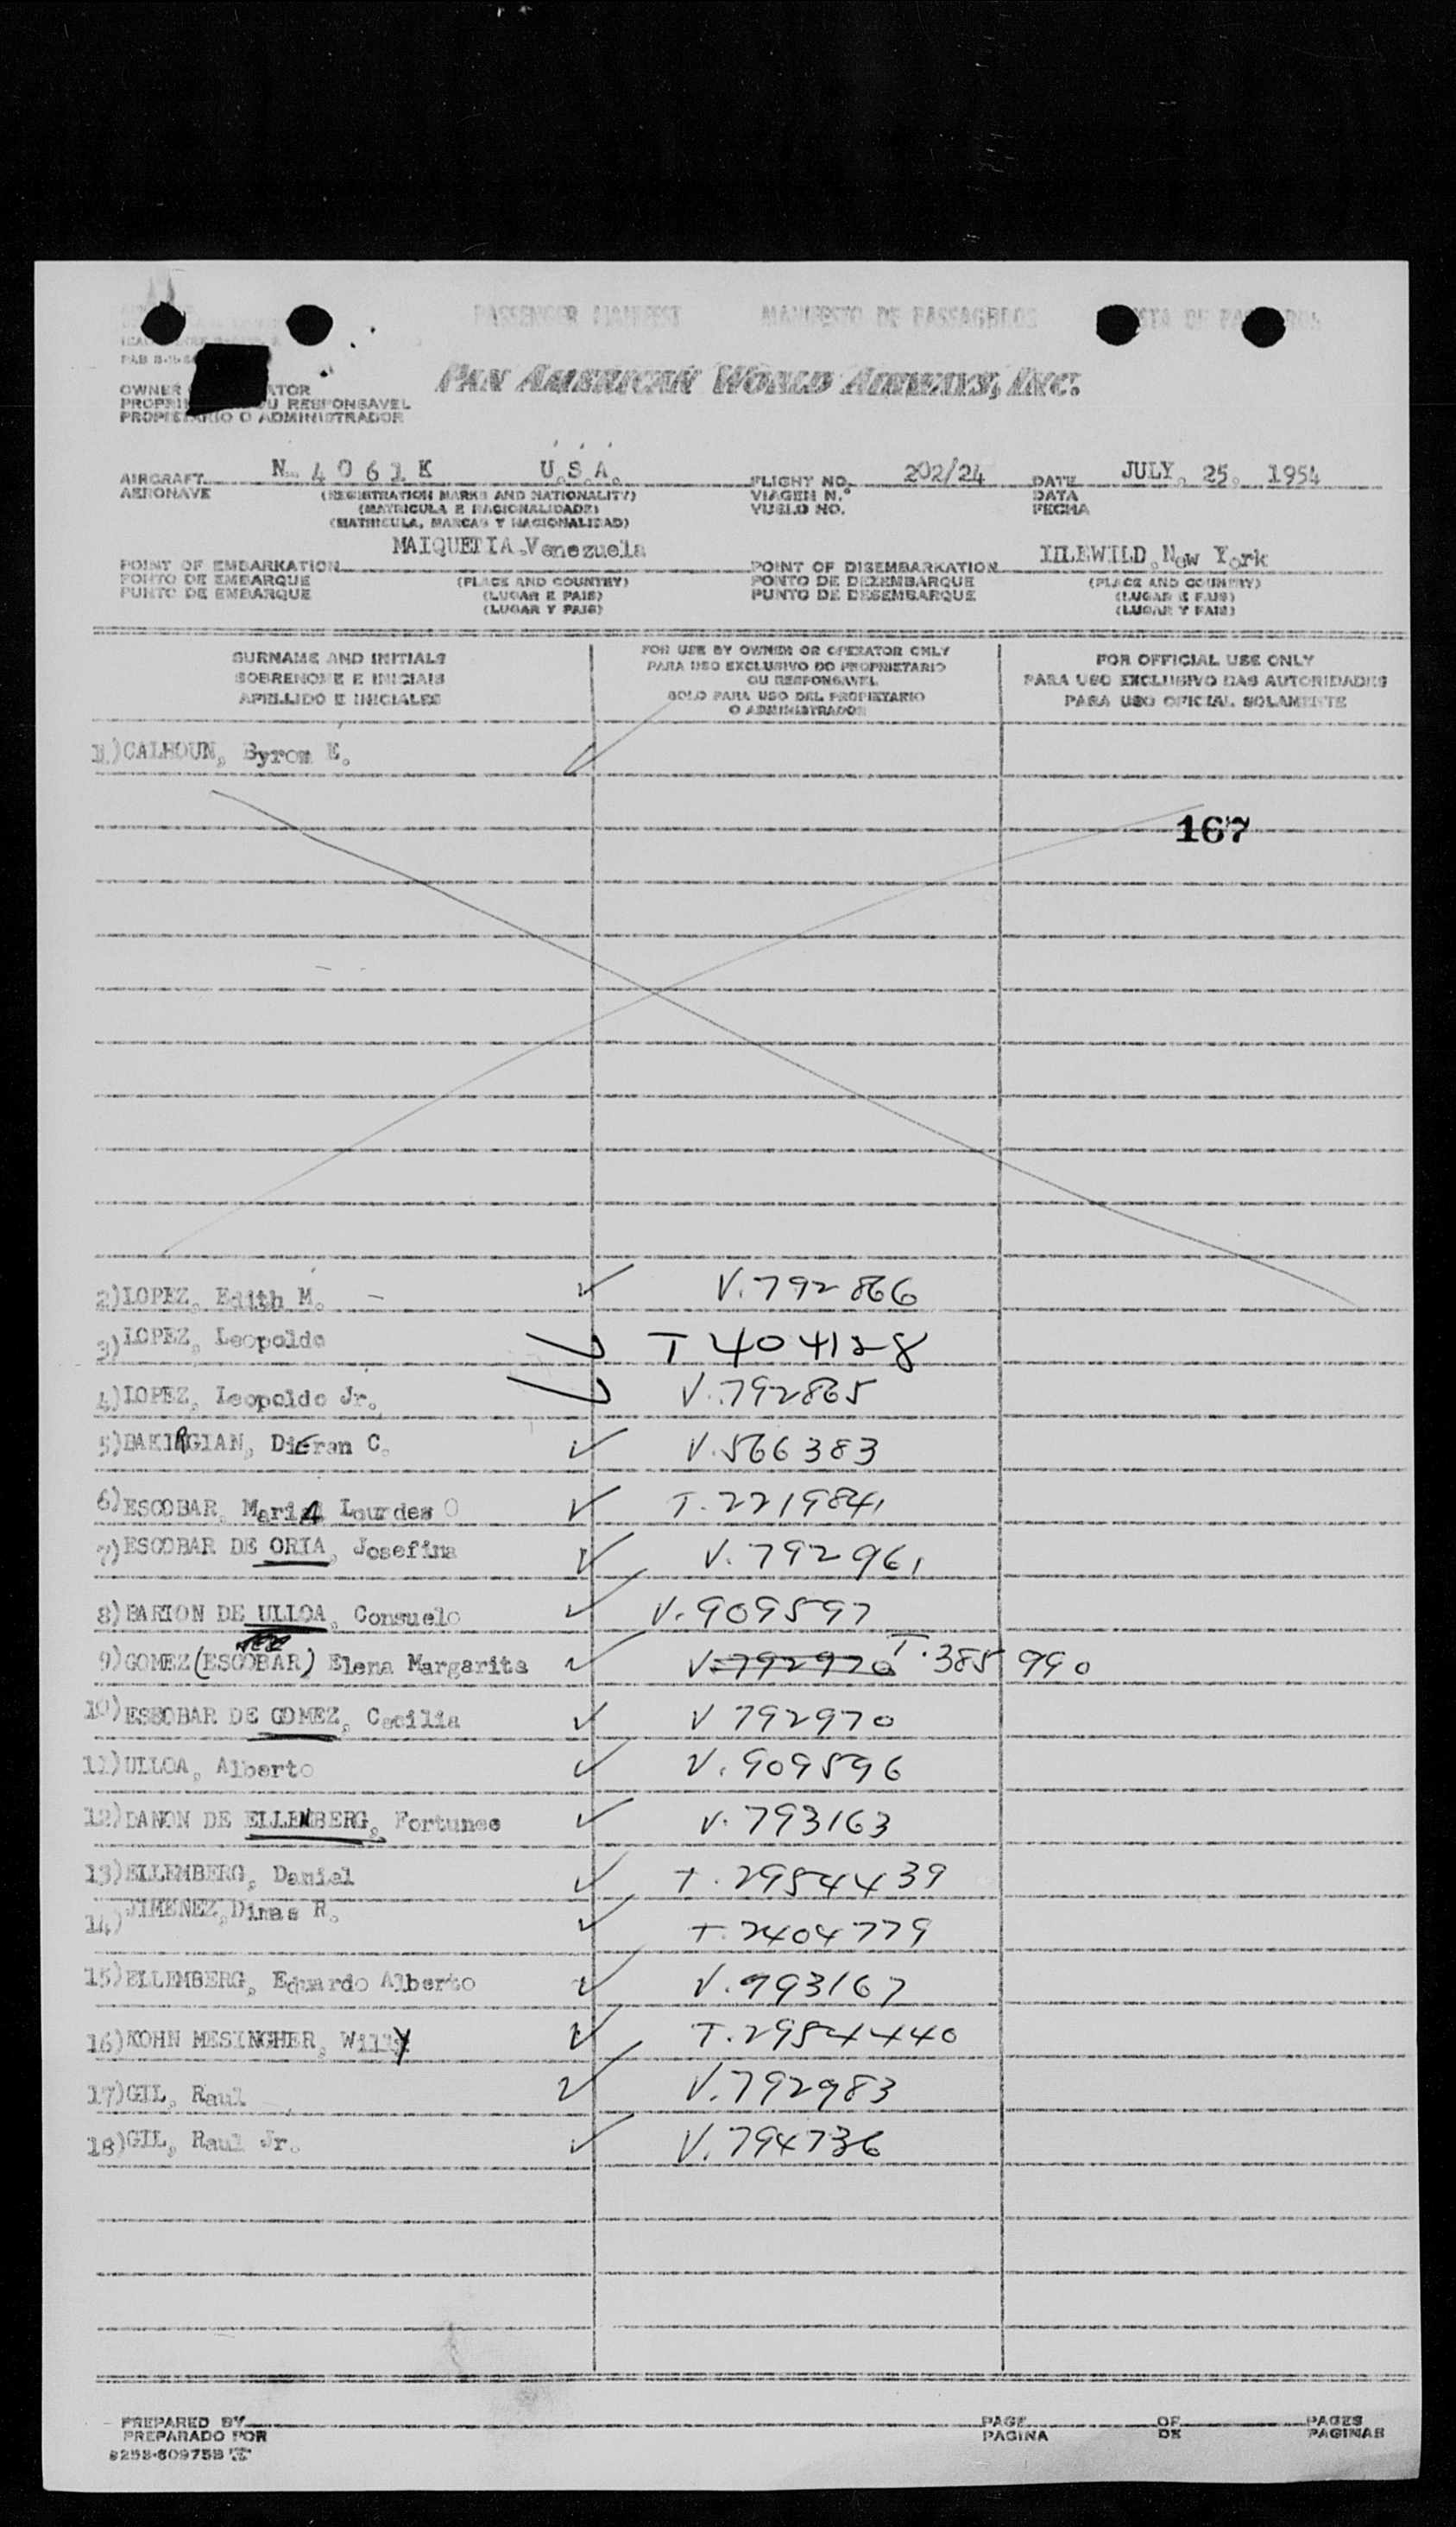 PASSENGER MANIFEST MANIFESTO DE PASSAGEROS
OWNER
PROPRI U RESPONSAVEL
PROPIETARIO O ADMINISTRADOR
PAN AMERICAN WORLD AIRWAYS, INC.
AIRCRAFT N. 4 0 6 1 K U.S.A. FLIGHT NO. 202/24 DATE JULY, 25, 1954
AERONAVE (REGISTRATION MARKS AND NATIONALITY) VIAGEN N.º DATA
(MATRICULA E NACIONALIDADE) VUELO NO. FECHA
(MATRICULA, MARCAS Y NACIONALIDAD)
MAIQUETIA, Venezuela IDLEWILD, New York
POINT OF EMBARKATION POINT OF DISEMBARKATION
PONTO DE EMBARQUE (PLACE AND COUNTRY) PONTO DE DEZEMBARQUE (PLACE AND COUNTRY)
PUNTO DE EMBARQUE (LUGAR E PAIS) PUNTO DE DESEMBARQUE (LUGAR E PAIS)
(LUGAR Y PAIS) (LUGAR Y PAIS)
SURNAME AND INITIALS
SOBRENOME E INICIAIS
APELLIDO E INICIALES
FOR USE BY OWNER OR OPERATOR ONLY
PARA USO EXCLUSIVO DO PROPRIETARIO
OU RESPONSAVEL
SOLO PARA USO DEL PROPIETARIO
O ADMINISTRADOR
FOR OFFICIAL USE ONLY
PARA USO EXCLUSIVO DAS AUTORIDADES
PARA USO OFICIAL SOLAMENTE
1) CALHOUN, Byrom E.
167
2) LOPEZ, Edith M. V. 792866
3) LOPEZ, Leopoldo T 404128
4) LOPEZ, Leopoldo Jr. V. 792865
5) BAKIRGIAN, DiEran C. V. 566383
6) ESCOBAR, MariA Lourdes O T. 2219841
7) ESCOBAR DE ORIA, Josefina V. 792961
8) BARION DE ULLOA, Consuelo V. 909597
9) GOMEZ (ESCOBAR) Elena Margarita V 792970 T. 385990
10) ESSOBAR DE GOMEZ, Cecilia V 792970
11) ULLOA, Alberto V. 909596
12) DANON DE ELLENBERG, Fortunee V. 793163
13) ELLEMBERG, Daniel T. 2954439
14) JIMENEZ, Dimas R. T. 2404779
15) ELLEMBERG, Eduardo Alberto V. 793167
16) KOHN MESINGHER, Willy T. 2954440
17) GIL, Raul V. 792983
18) GIL, Raul Jr. V. 794736
PREPARED BY PAGE OF PAGES
PREPARADO POR PAGINA DE PAGINAS